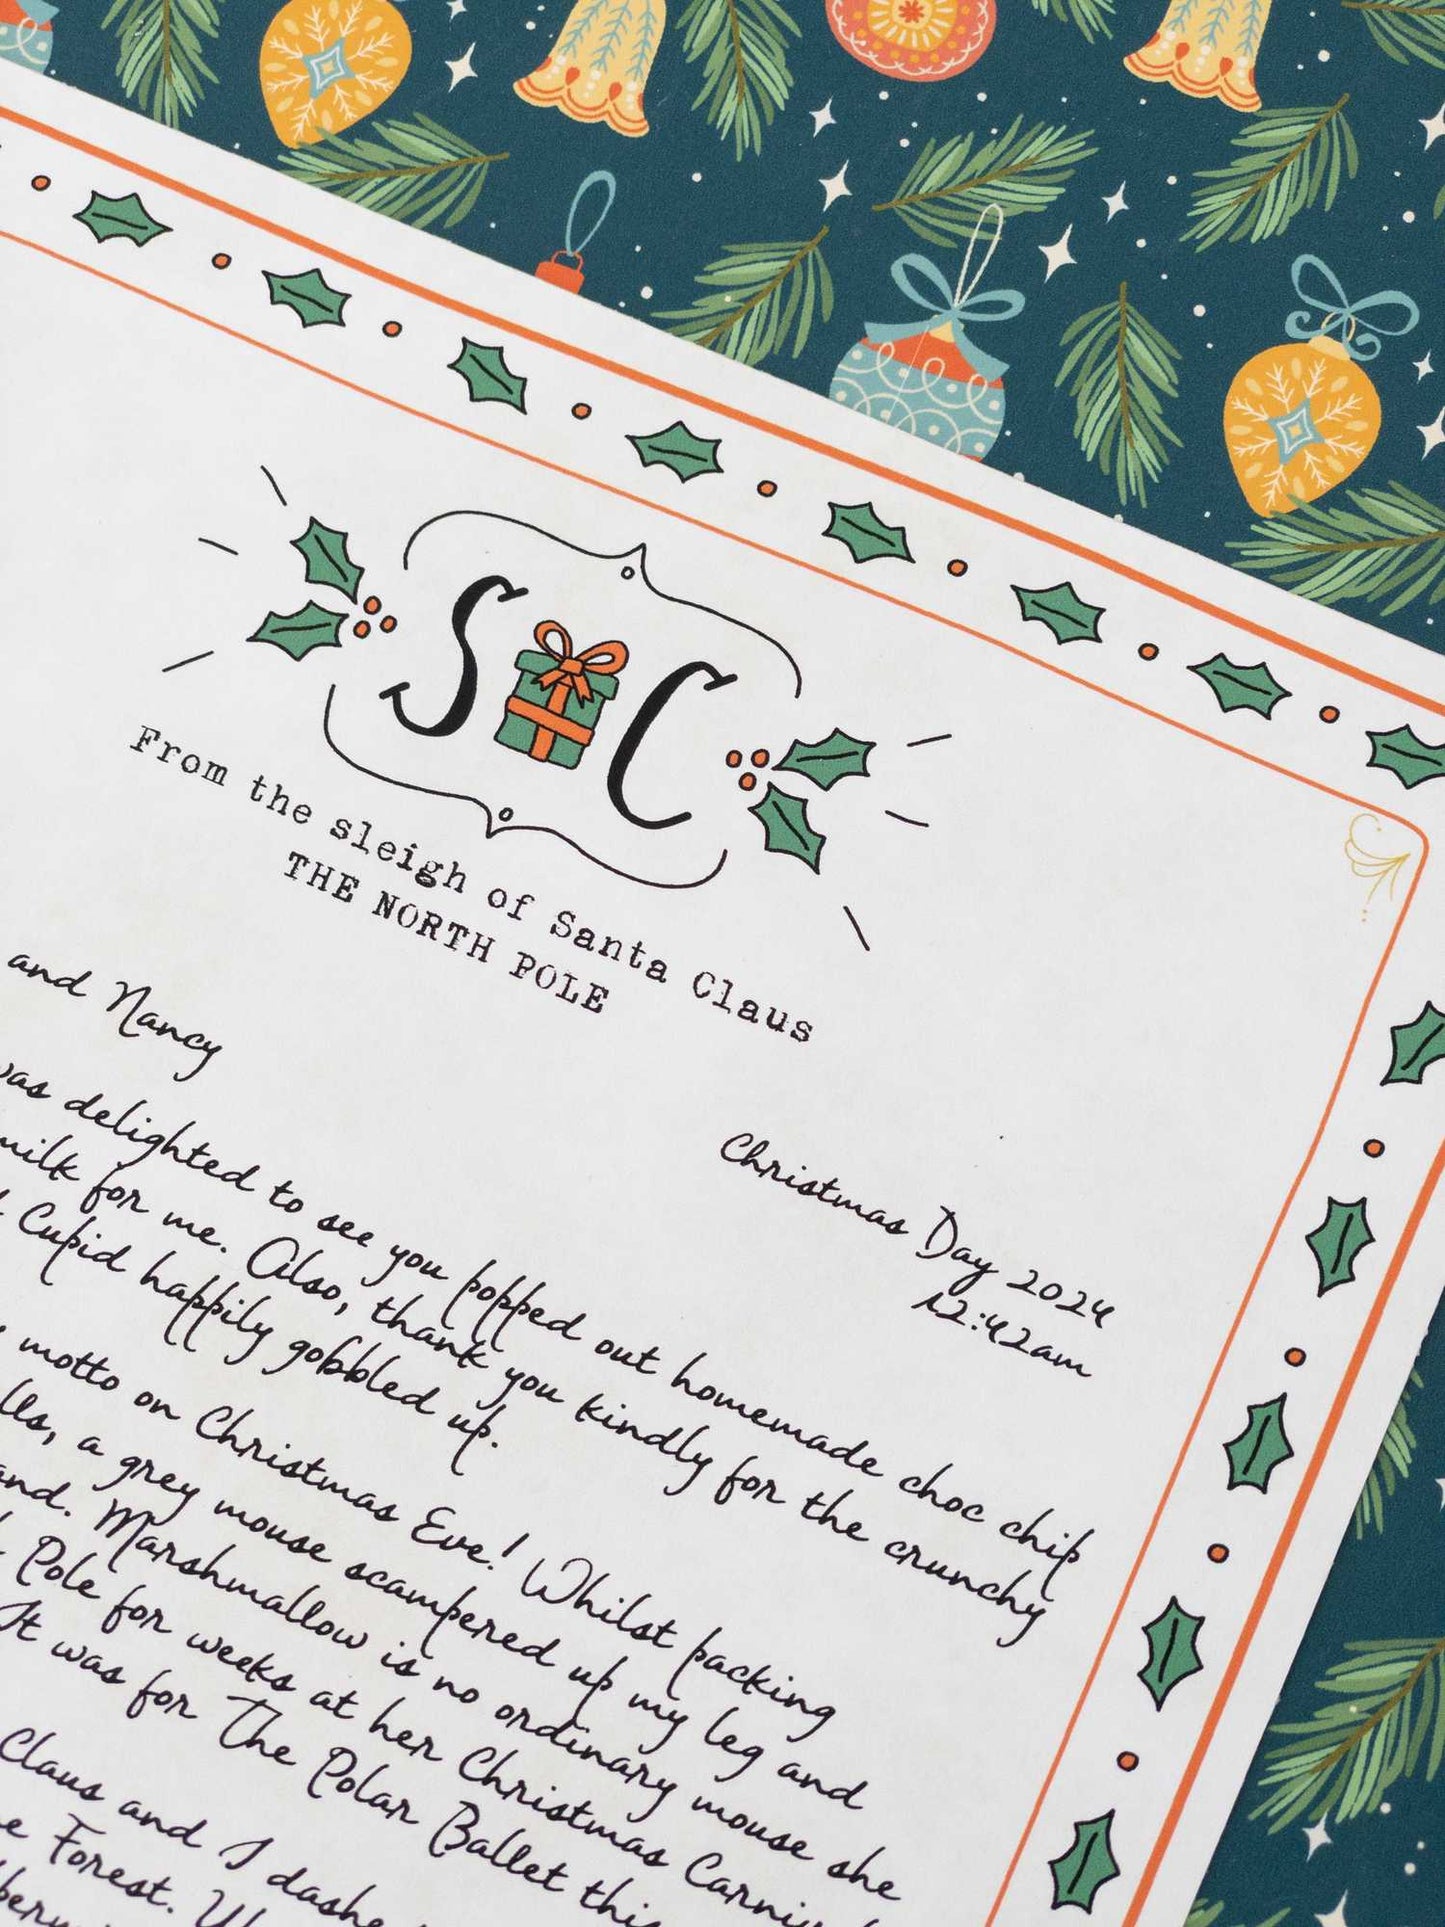 S C
From the sleigh of Santa Claus
THE NORTH POLE
and Nancy
Christmas Day 2024
12:42am
was delighted to see you popped out homemade choc chip
milk for me. Also, thank you kindly for the crunchy
Cupid happily gobbled up.
motto on Christmas Eve! Whilst packing
a grey mouse scampered up my leg and
Marshmallow is no ordinary mouse she
Pole for weeks at her Christmas
It was for The Polar Ballet this
Claus and I
Forest.